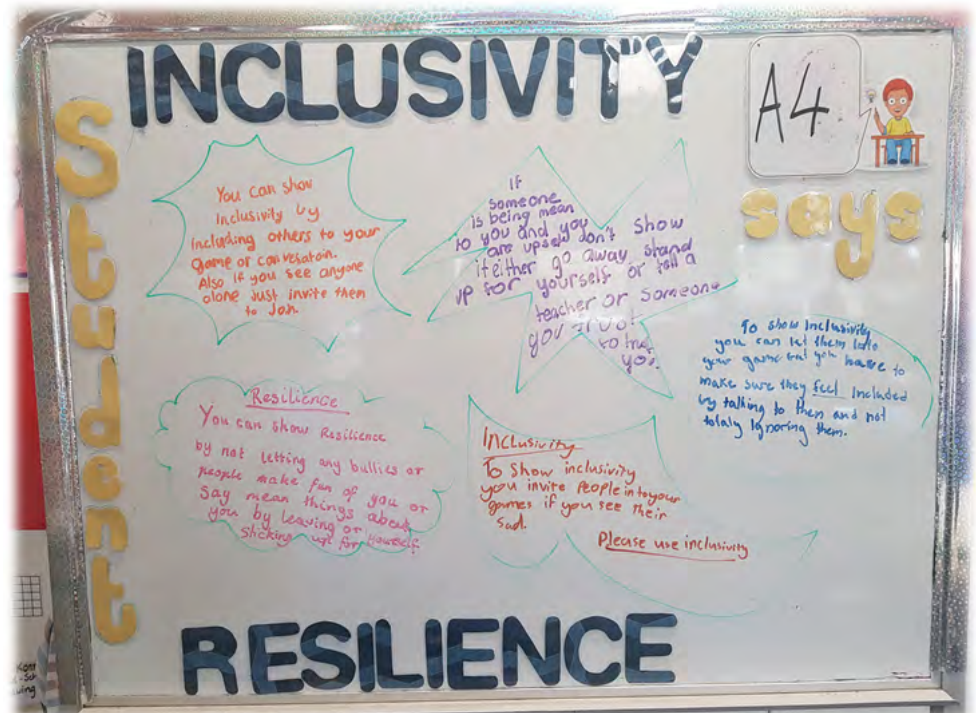 INCLUSIVITY
Student
A4
says
You can show
Inclusivity by
including others to your
game or conversatoin.
Also if you see anyone
alone Just invite them
to Join.
If
someone
is being mean
to you and you
are upset don't show
it either go away stand
up for yourself or tell a
teacher or someone
you
you.
To show Inclusivity
you can let them into
your game but you have to
make sure they feel Included
by talking to them and not
totaly Ignoring them.
Resilience
You can show Resilience
by not letting any bullies or
people make fun of you or
say mean things about
you by leaving or
sticking up for yourself.
Inclusivity
To show inclusivity
you invite people into your
games if you see their
sad.
Please use inclusivity
RESILIENCE